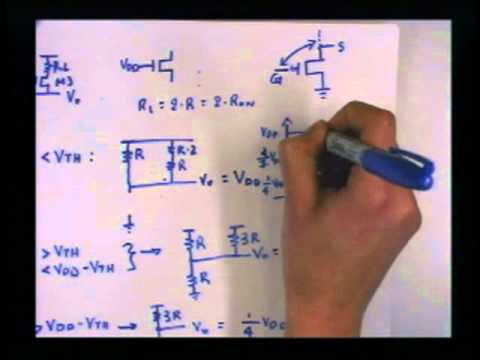 RL
M3
Vo
VDD
S
G
RL = 2·R = 2·RON
VDD
< VTH :
R
R·2
R
Vo = VDD
> VTH
< VDD - VTH
R
3R
R
Vo =
> VDD - VTH
3R
Vo = 1/4 VDD